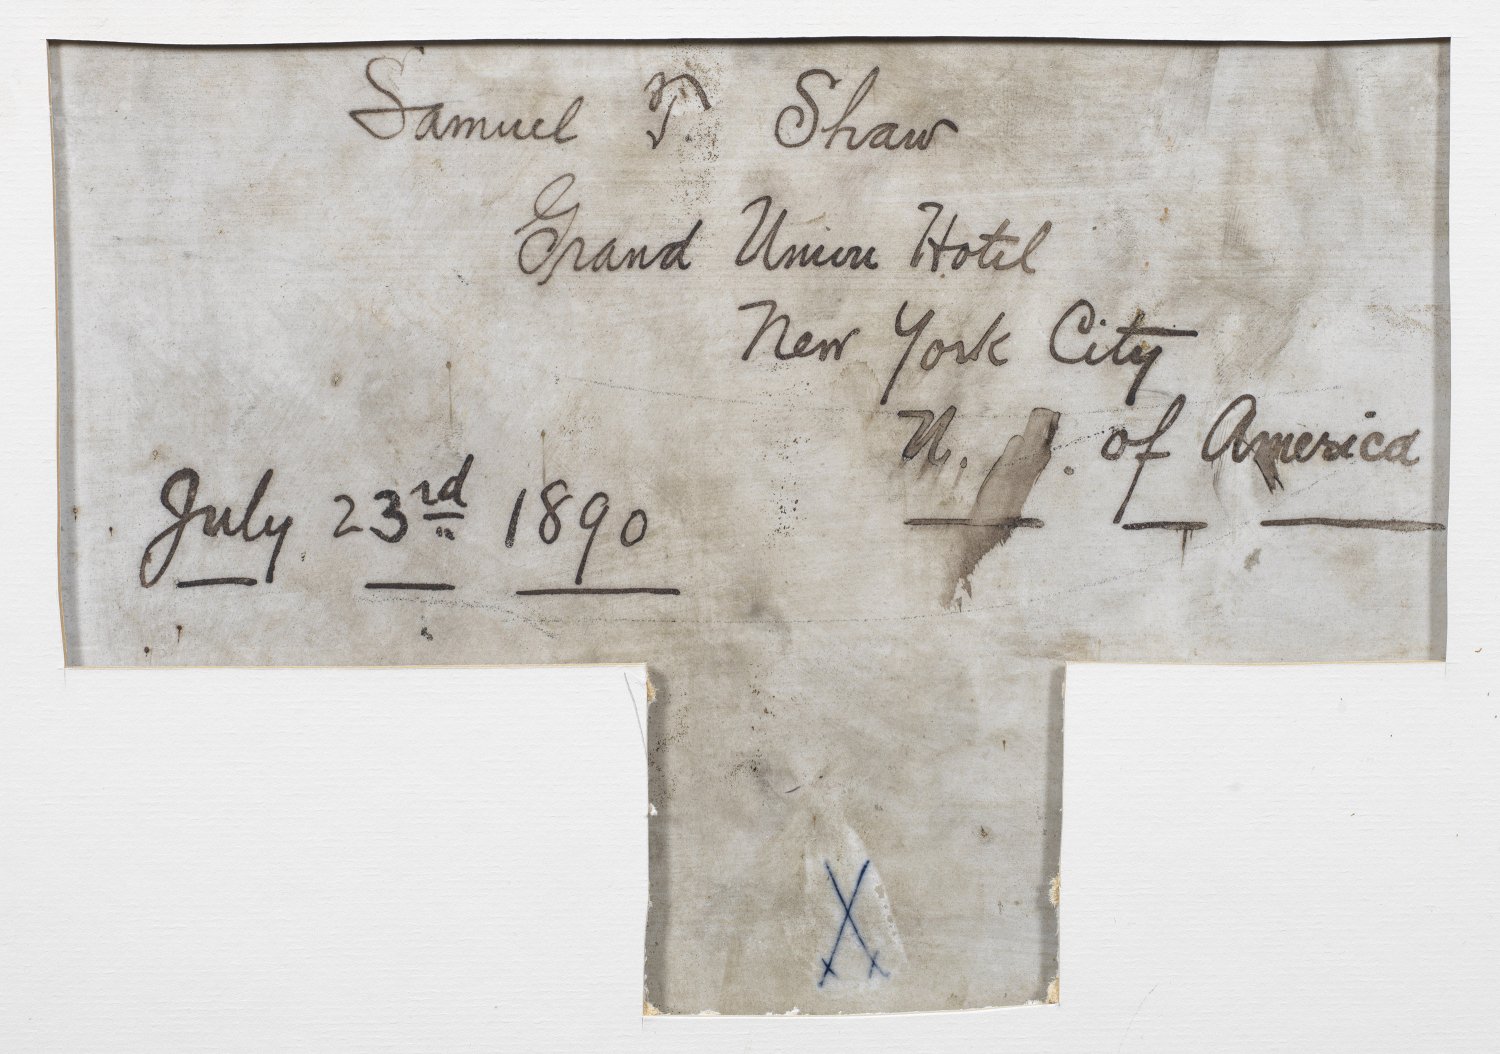 Samuel T. Shaw
Grand Union Hotel
New York City
U. . of America
July 23rd 1890